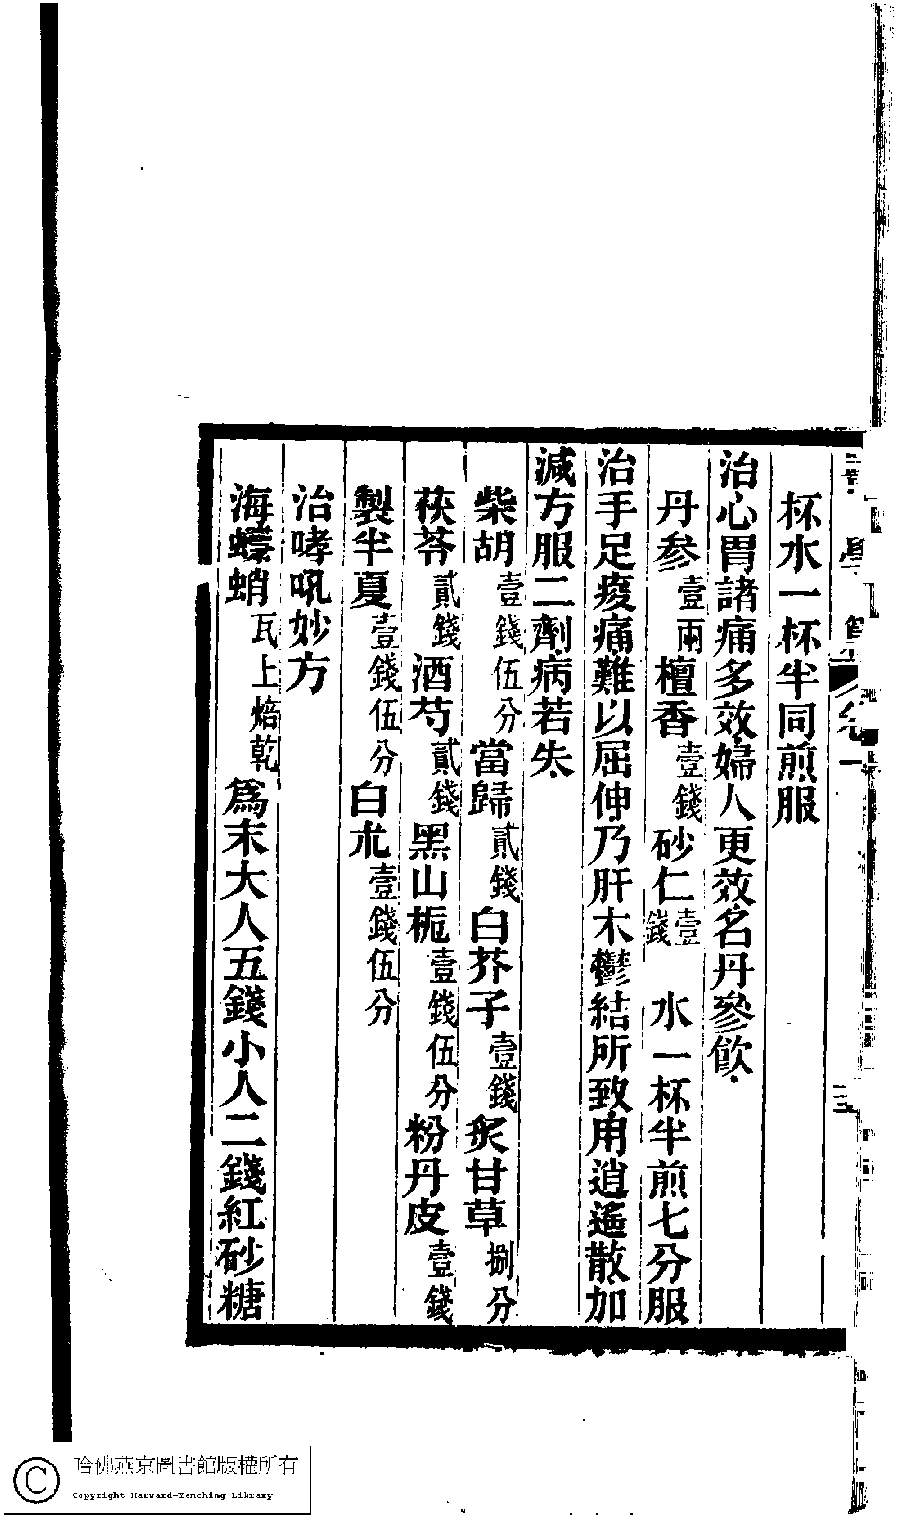 杯水一杯半同煎服
治心胃諸痛多效婦人更效名丹參飲
丹参壹兩檀香壹錢砂仁壹錢 水一杯半煎七分服
治手足痠痛難以屈伸乃肝木鬱結所致用逍遙散加
減方服二劑病若失
柴胡壹錢伍分當歸貳錢白芥子壹錢炙甘草捌分
茯苓貳錢酒芍貳錢黑山梔壹錢伍分粉丹皮壹錢
製半夏壹錢伍分白朮壹錢伍分
治哮吼妙方
海螵蛸瓦上焙乾為末大人五錢小人二錢紅砂糖
哈佛燕京圖書館版權所有
Copyright Harvard-Yenching Library